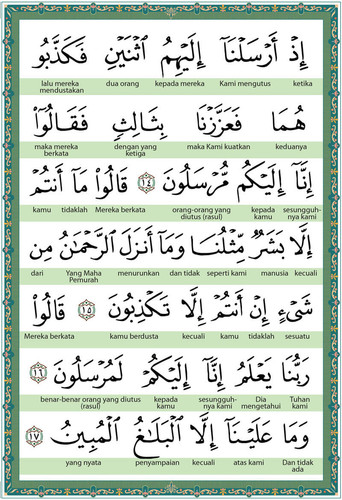 إِذْ أَرْسَلْنَآ إِلَيْهِمُ ٱثْنَيْنِ فَكَذَّبُو
ketika Kami mengutus kepada mereka dua orang lalu mereka mendustakan
هُمَا فَعَزَّزْنَا بِثَالِثٍ فَقَالُوٓا۟
keduanya maka Kami kuatkan dengan yang ketiga maka mereka berkata
إِنَّآ إِلَيْكُم مُّرْسَلُونَ ١٤ قَالُوا۟ مَآ أَنتُمْ
sesungguh-nya kami kepada kamu orang-orang yang diutus (rasul) Mereka berkata tidaklah kamu
إِلَّا بَشَرٌ مِّثْلُنَا وَمَآ أَنزَلَ ٱلرَّحْمَٰنُ مِن
kecuali manusia seperti kami dan tidak menurunkan Yang Maha Pemurah dari
شَىْءٍ إِنْ أَنتُمْ إِلَّا تَكْذِبُونَ ١٥ قَالُوا۟
sesuatu tidaklah kamu kecuali kamu berdusta Mereka berkata
رَبُّنَا يَعْلَمُ إِنَّآ إِلَيْكُمْ لَمُرْسَلُونَ ١٦
Tuhan kami Dia mengetahui sesungguh-nya kami kepada kamu benar-benar orang yang diutus (rasul)
وَمَا عَلَيْنَآ إِلَّا ٱلْبَلَٰغُ ٱلْمُبِينُ ١٧
Dan tidak ada atas kami kecuali penyampaian yang nyata